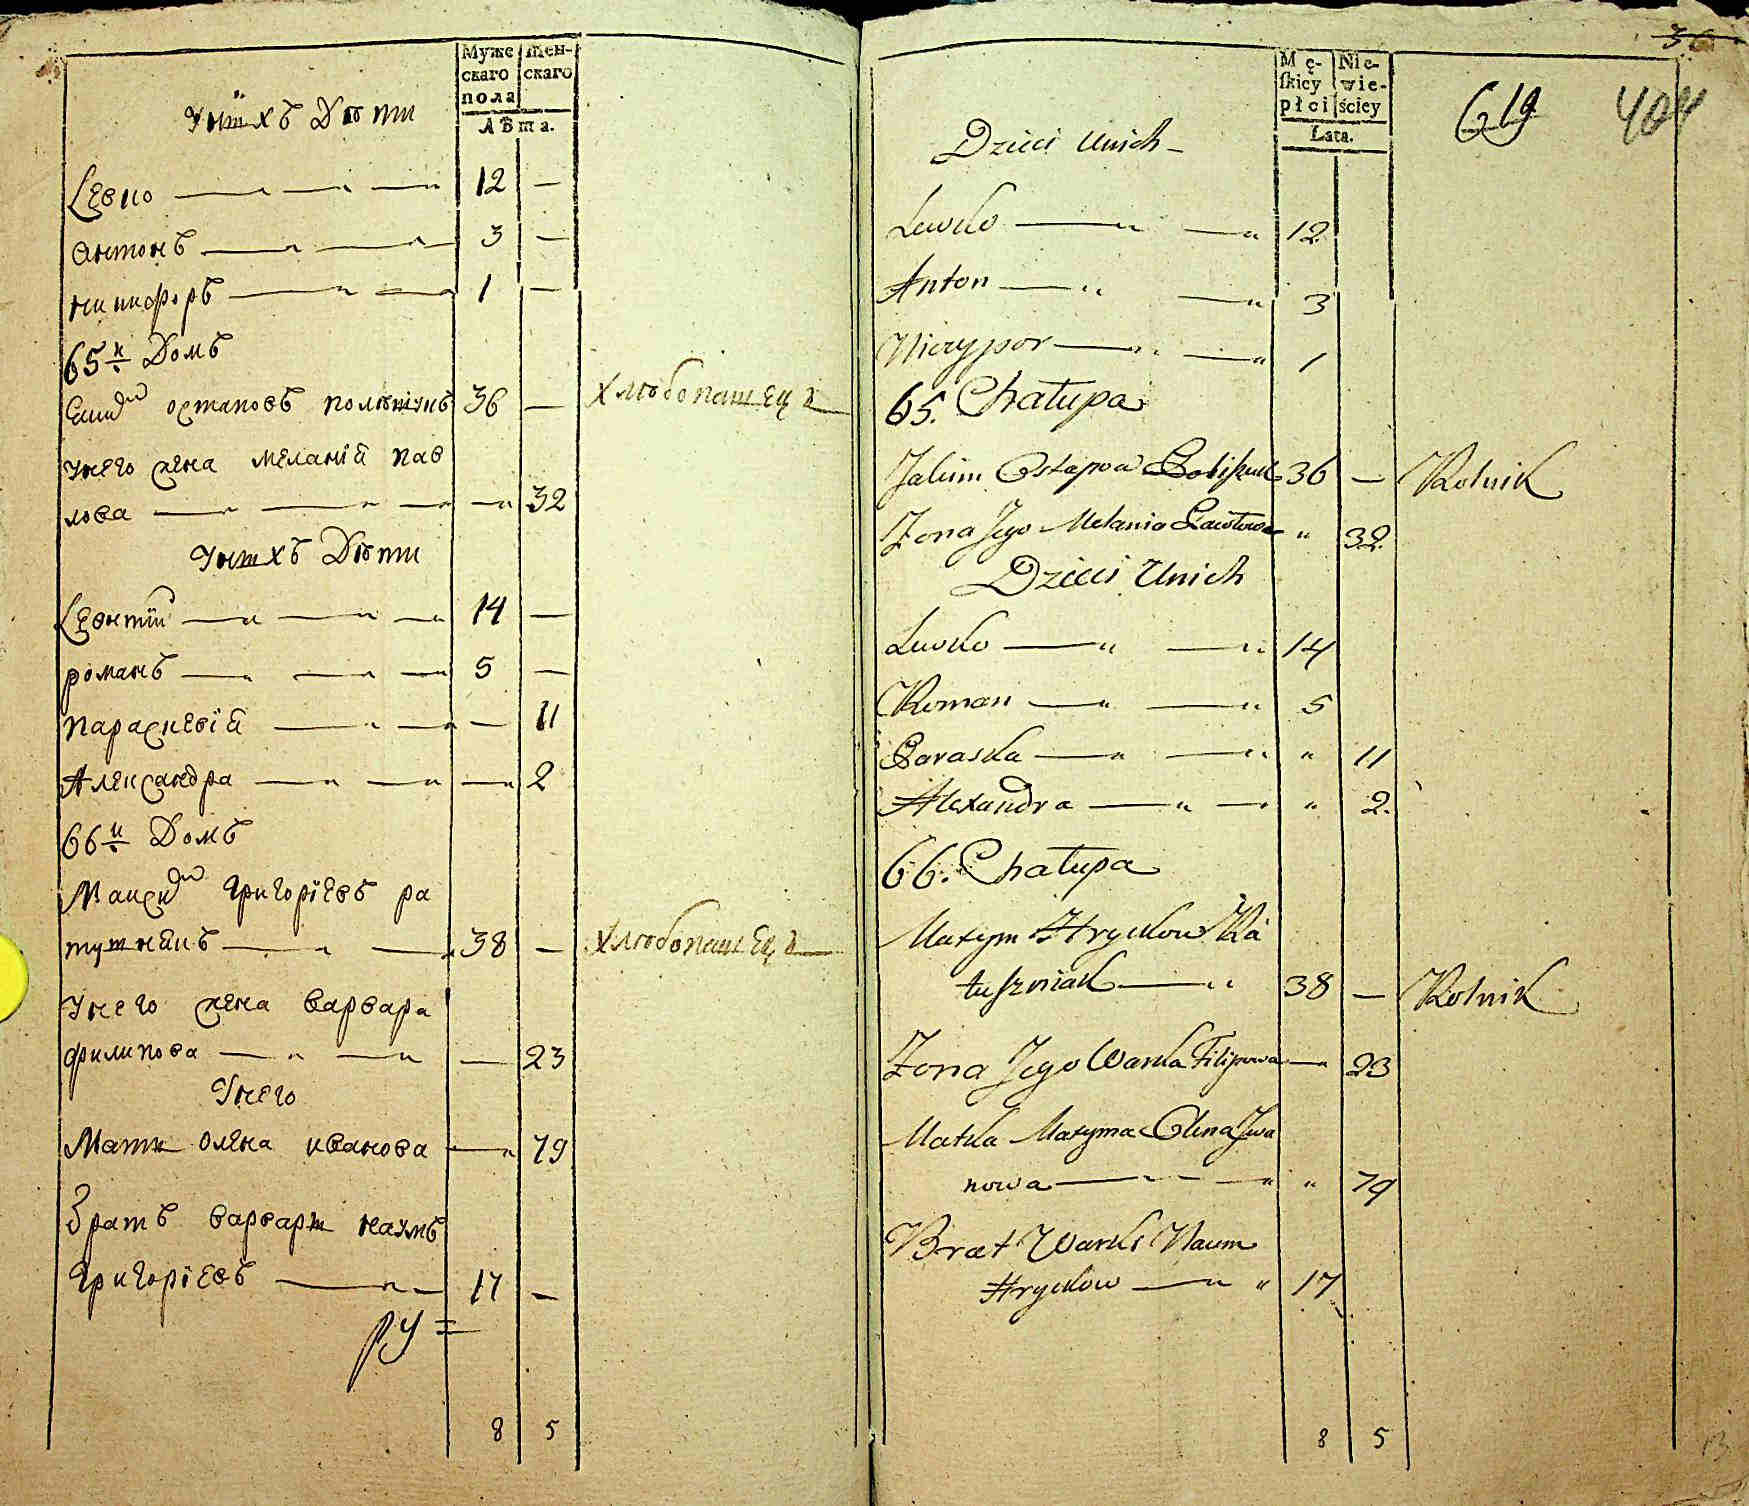 Муже
скаго
пола
Жен-
скаго
Лѣта.
У нихъ Дѣти
Левко 12 —
Антонъ 3 —
Никифоръ 1 —
65й Домъ
остаповъ 36 — хлѣбопашецъ
У него жена Меланїй пав
лова — 32
У нихъ Дѣти
Леонтїй 14 —
романъ 5 —
Параскевїй — 11
Александра — 2
66й Домъ
Максим Григорїевъ ра
тушнякъ 38 — хлѣбопашецъ
У него жена варвара
филипова — 23
У него
Мати олена иванова — 79
Братъ варвары наумъ
Григорїевъ 17 —
8 5
36
Mę-
skiey
płci
Nie-
wie-
ściey
Lata.
619 404
Dzieci Unich
Lewko 12
Anton 3
Nicypor 1
65. Chałupa
Jakim Ostapow 36 — Rolnik
Zona Jego Melania Pawłowa " 32
Dzieci Unich
Lewko 14
Roman 5
Paraska " 11
Alexandra " 2.
66. Chałupa
Maxym Hryckow Ra
tuszniak 38 — Rolnik
Zona Jego Warka Filipowa — 23
Matka Maxyma Olena Jwa
nowa " 79
Brat Warki Naum
Hryckow 17
8 5
13